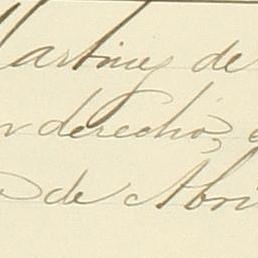 Martinez de
derecho,
de Abri